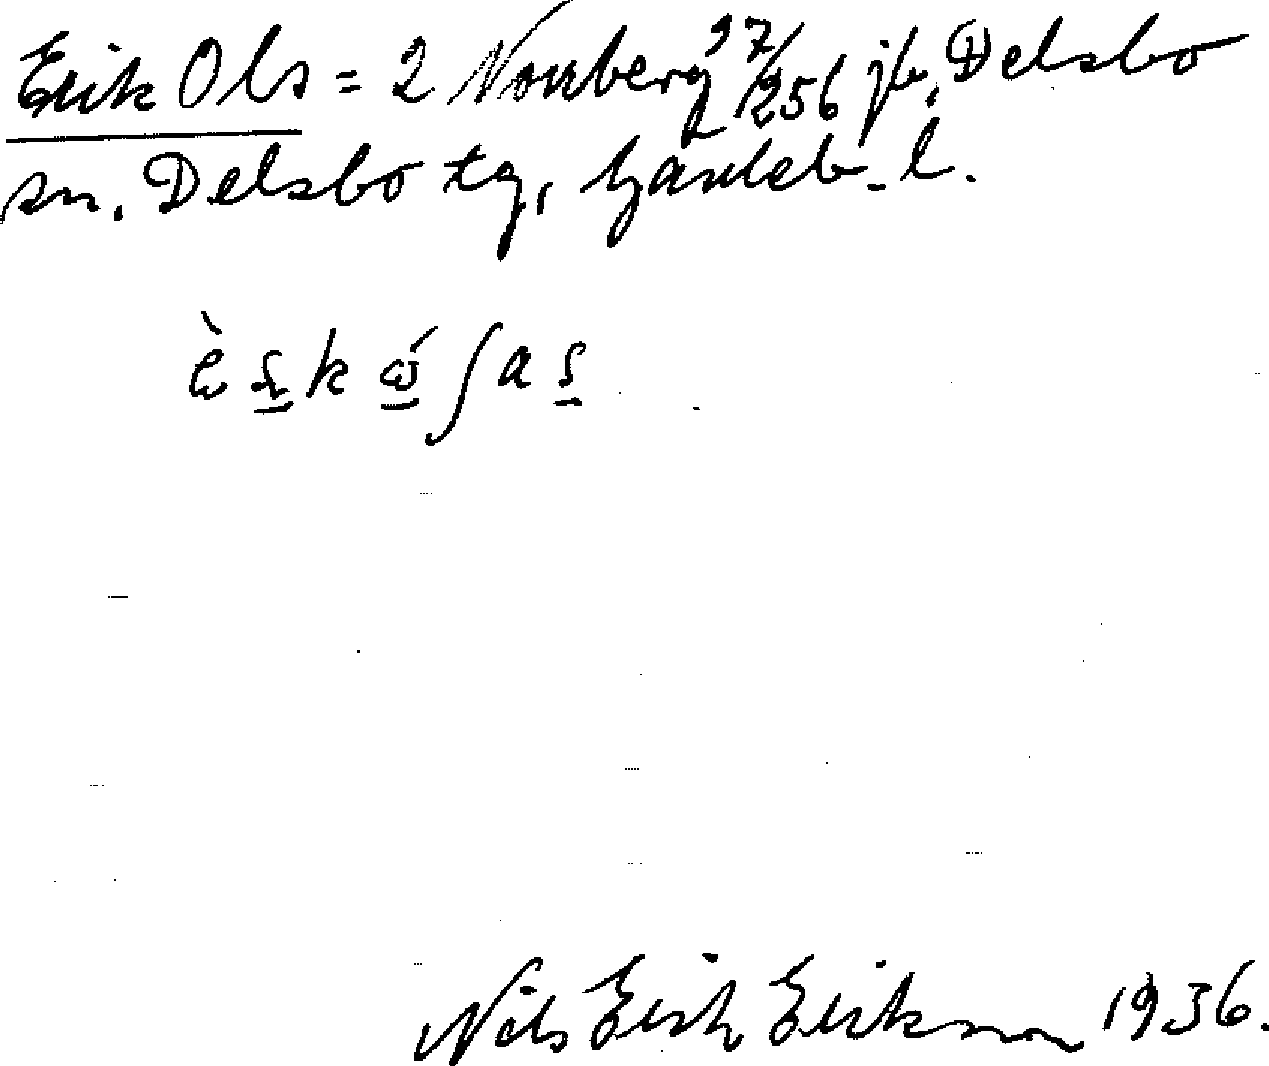 Erik Ols = 2 Norrberg 97/256 jb, Delsbo
sn. Delsbo tg, Gävleb. l.
Nils Erik Erikson 1936.